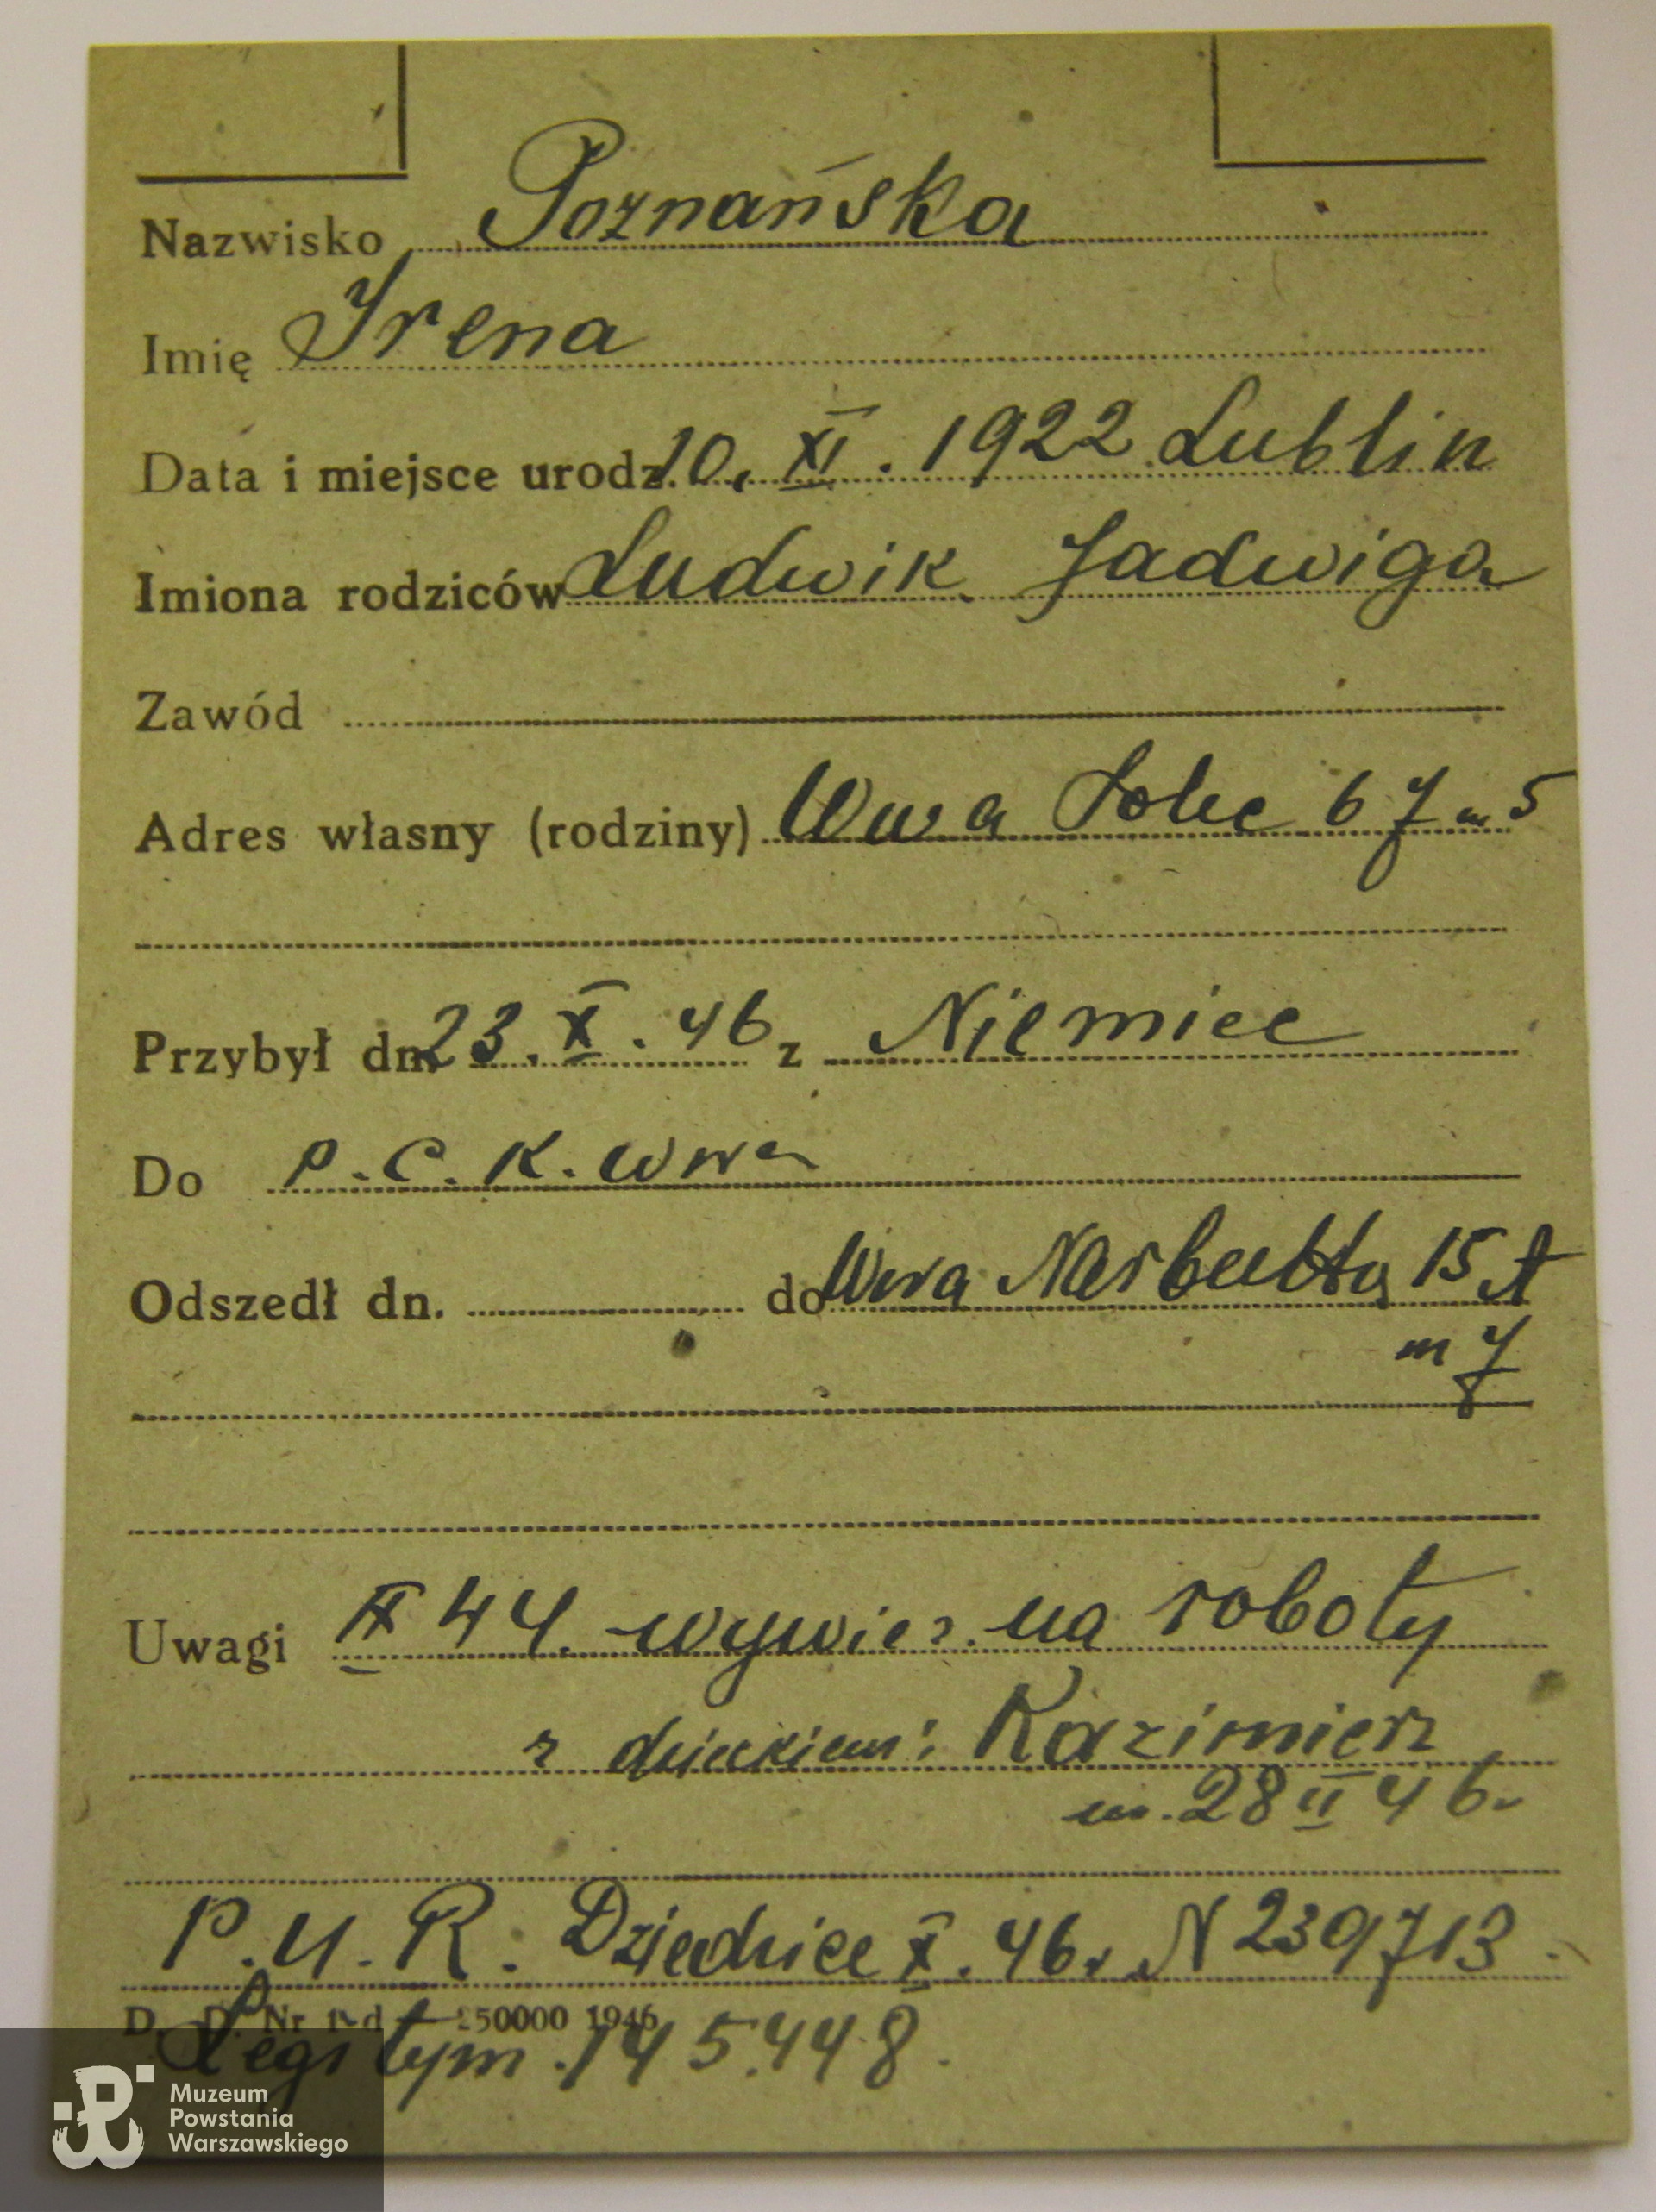 Nazwisko Poznańska
Imię Irena
Data i miejsce urodz. 10. XI. 1922 Lublin
Imiona rodziców Ludwik Jadwiga
Zawód
Adres własny (rodziny) Wwa Solec 67 m 5
Przybył dn. 23. X. 46 z Niemiec
Do P.C.K. Wwa
Odszedł dn. do Wwa Narbutta 15 A
m 7
Uwagi IX 44. wywiez. na roboty
z dzieckiem: Kazimierz
ur. 28 II 46.
P.U.R. Dziedzice X. 46 r. N 239713.
D. Nr 250000 1946
Legitym. 145.448.
Muzeum
Powstania
Warszawskiego